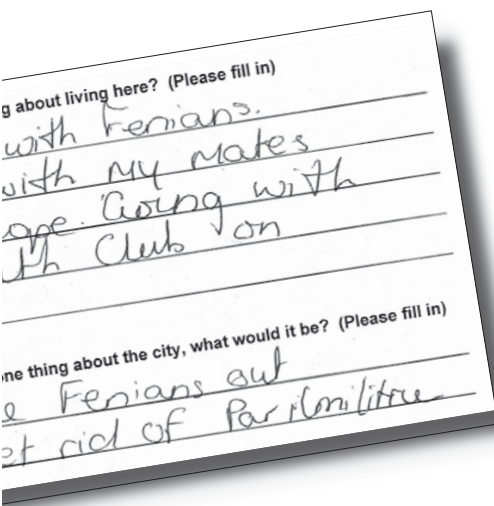 g about living here? (Please fill in)
with Fenians.
with My Mates
ope. Going with
th Club on
ne thing about the city, what would it be? (Please fill in)
e Fenians out
et rid of